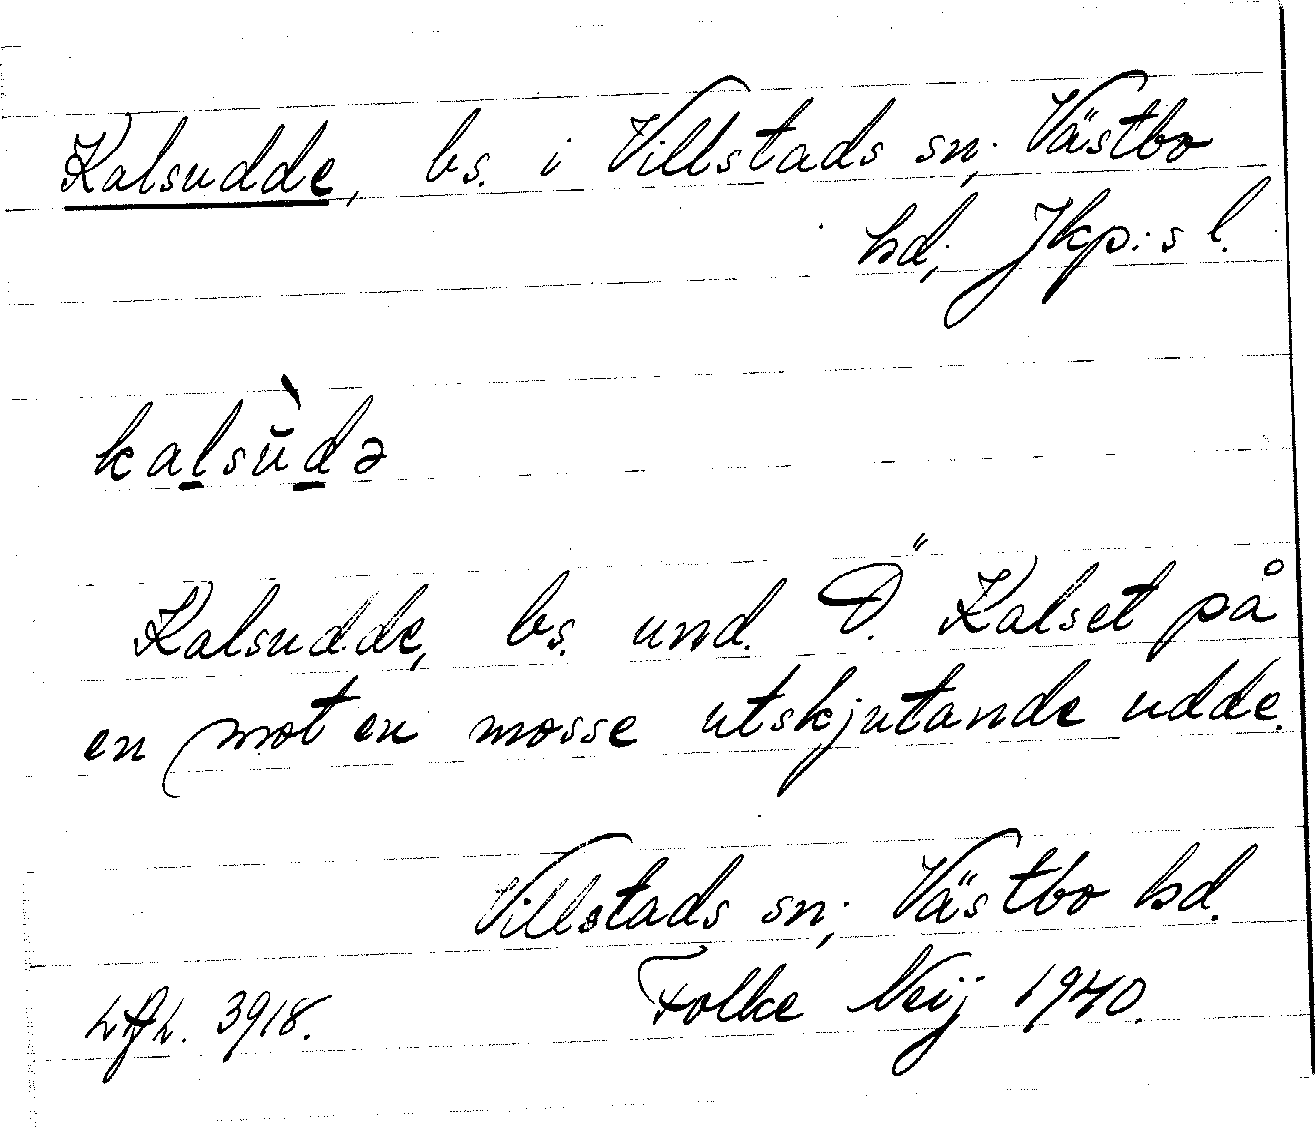 Kalsudde, bs. i Villstads sn; Västbo
hd; Jkp:s l.
kalsŭ̀də
Kalsudde, bs. und. Ö. Kalset på
en mot en mosse utskjutande udde.
Villstads sn; Västbo hd.
3918. Folke Neij 1940.